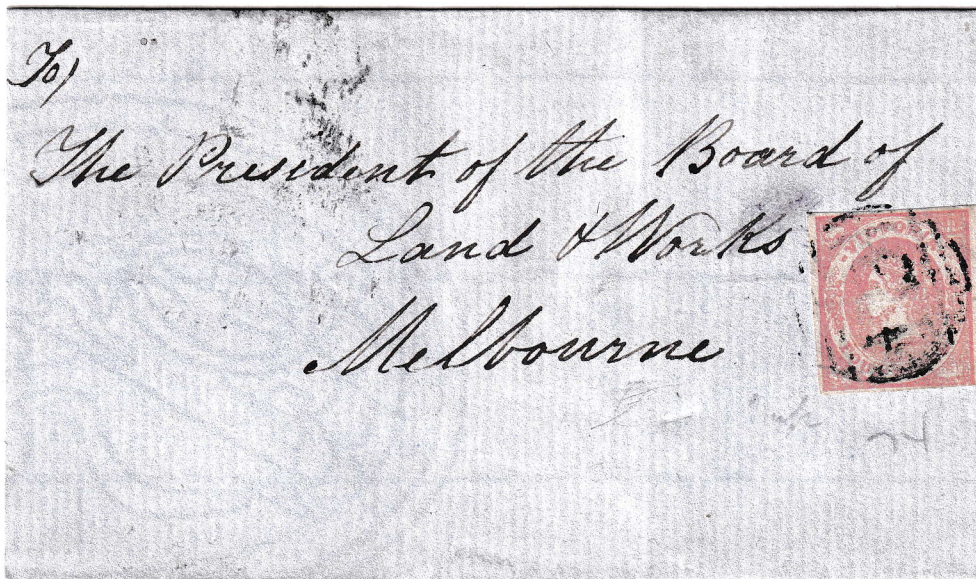 To)
The President of the Board of
Land & Works
Melbourne
VICTORIA